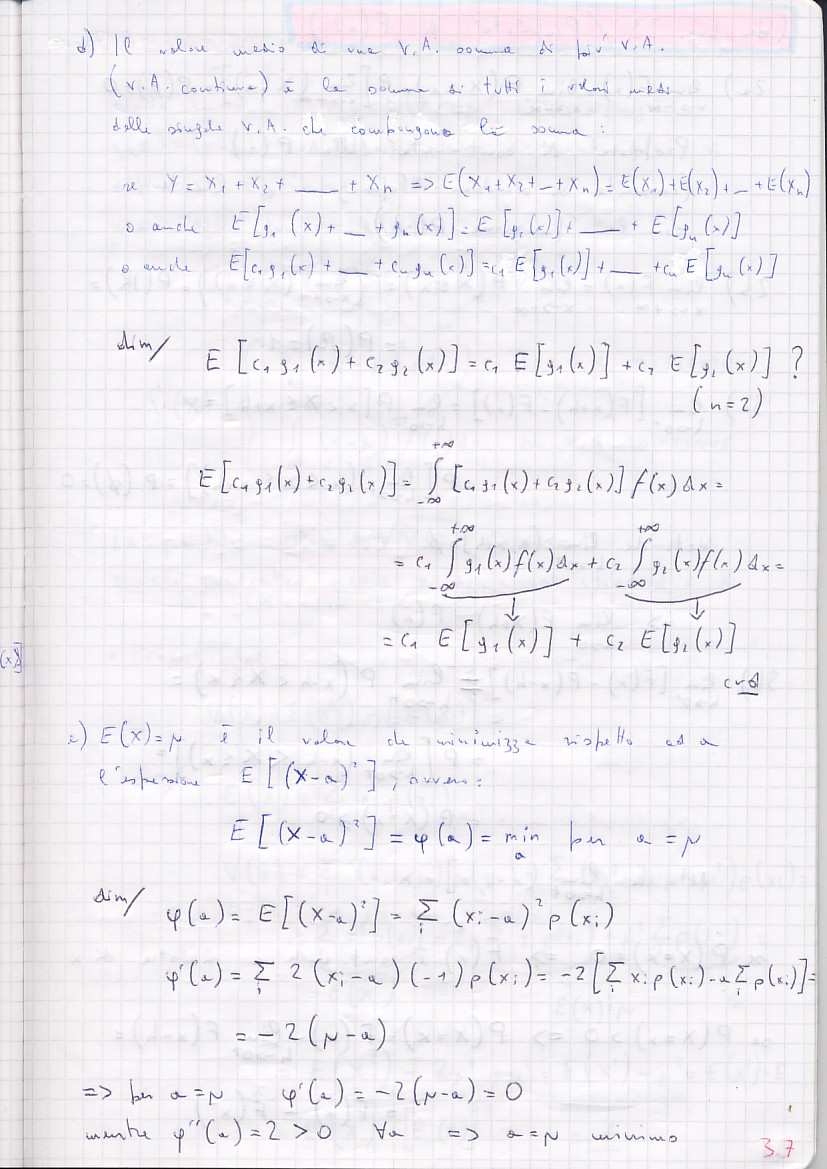 d) Il valore medio di una V.A. somma di più V.A.
(V.A. continue) è la somma di tutti i valori medi
delle singole V.A. che compongono la somma:
se Y = X₁ + X₂ + ___ + Xₙ => E(X₁+X₂+_+Xₙ) = E(X₁)+E(X₂)+_+E(Xₙ)
o anche E[g₁(x)+__+gₙ(x)] = E[g₁(x)]+___+E[gₙ(x)]
o anche E[c₁g₁(x)+__+cₙgₙ(x)] = c₁E[g₁(x)]+__+cₙE[gₙ(x)]
dim/ E[c₁g₁(x)+c₂g₂(x)] = c₁ E[g₁(x)] + c₂ E[g₂(x)] ?
(n=2)
E[c₁g₁(x)+c₂g₂(x)] = ∫_{-∞}^{+∞} [c₁g₁(x)+c₂g₂(x)] f(x) dx =
= c₁ ∫_{-∞}^{+∞} g₁(x)f(x)dx + c₂ ∫_{-∞}^{+∞} g₂(x)f(x)dx =
= c₁ E[g₁(x)] + c₂ E[g₂(x)]
cvd
(x)]
e) E(X)=μ è il valore che minimizza rispetto ad a
l'espressione E[(X-a)²], ovvero:
E[(X-a)²] = φ(a) = min_a per a = μ
dim/ φ(a) = E[(X-a)²] = Σ_i (xᵢ-a)² p(xᵢ)
φ'(a) = Σ_i 2(xᵢ-a)(-1)p(xᵢ) = -2[Σ_i xᵢp(xᵢ)-aΣ_i p(xᵢ)] =
= -2(μ-a)
=> per a=μ φ'(a) = -2(μ-a) = 0
mentre φ''(a) = 2 > 0 ∀a => a=μ minimo
3.7